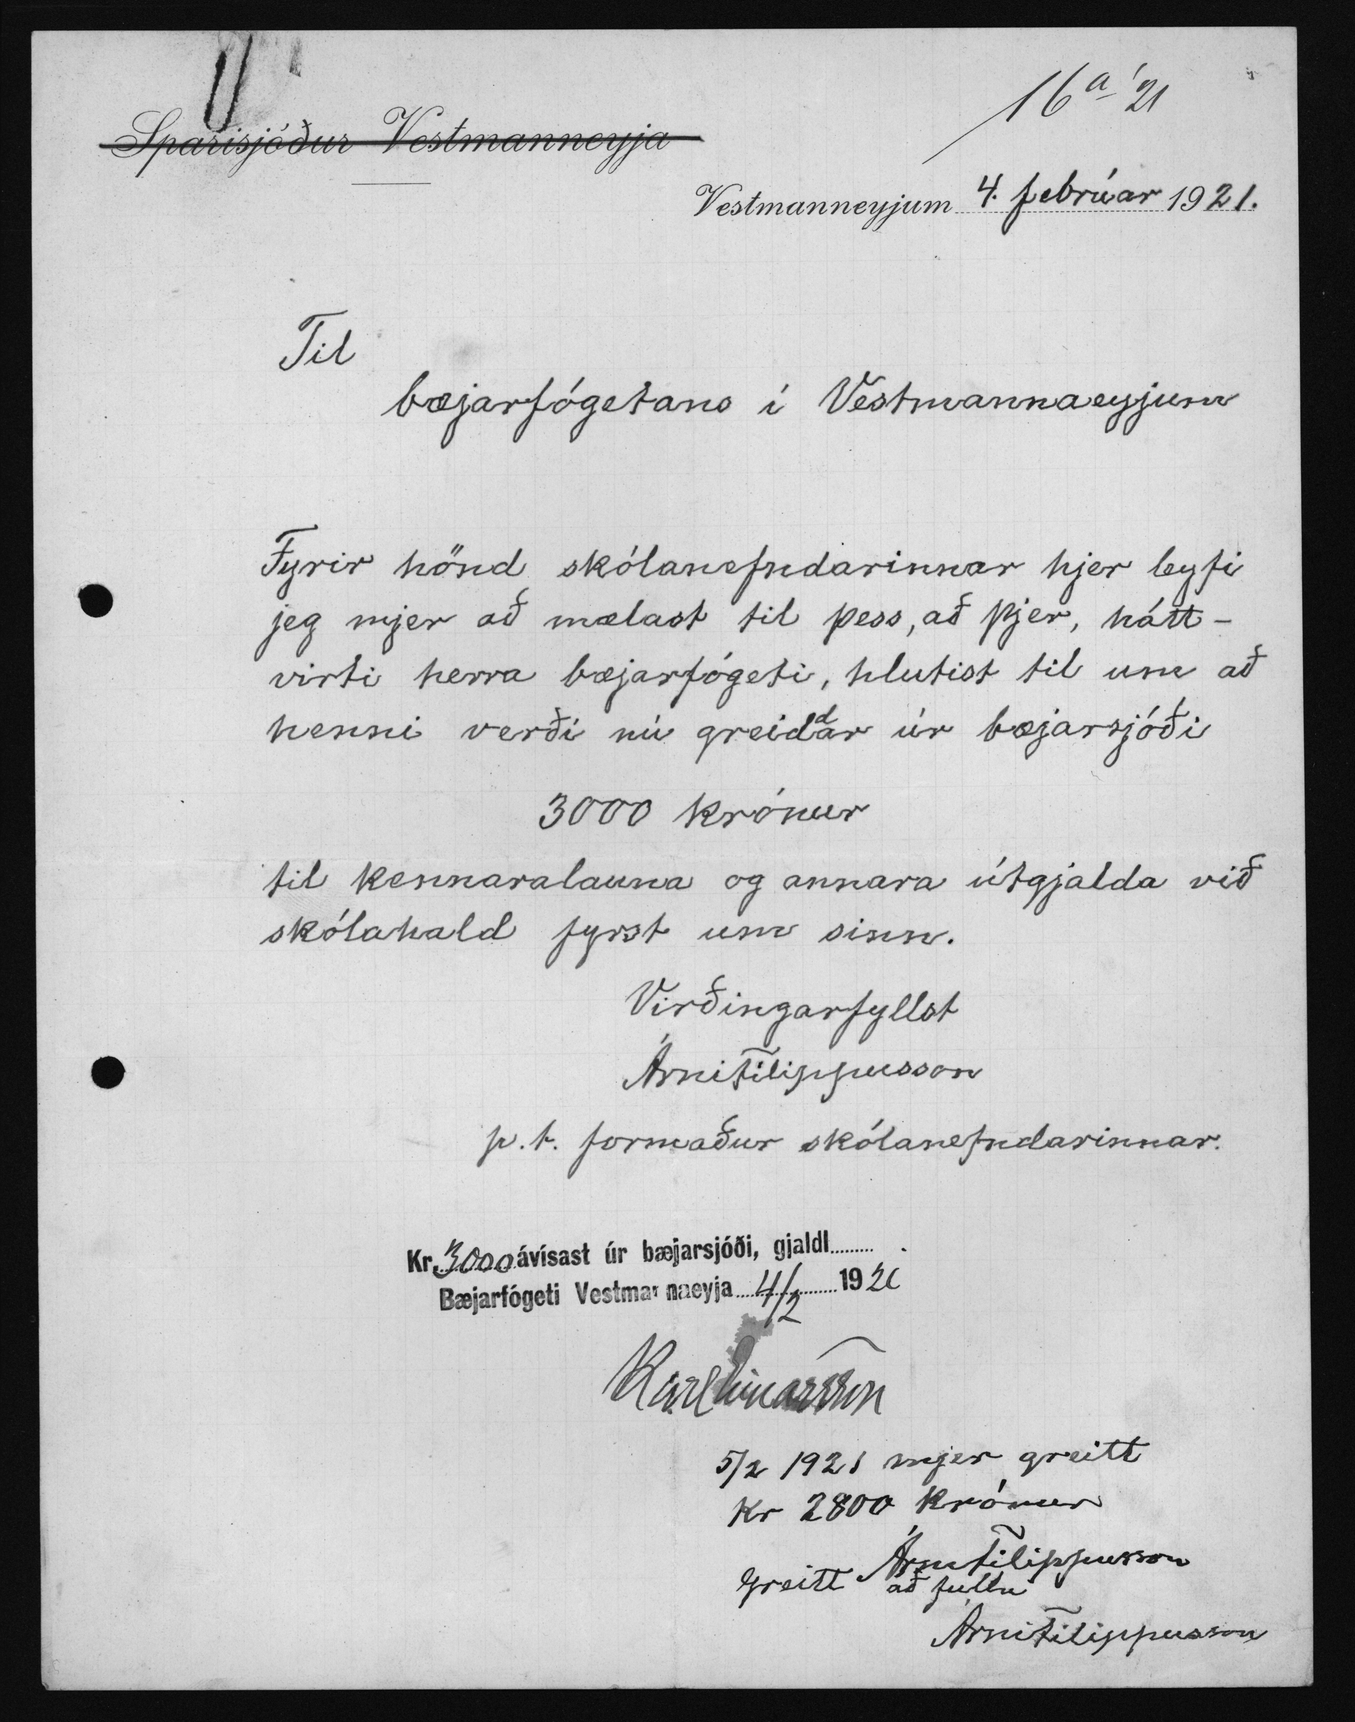 16a '21
Sparisjóður Vestmanneyja
Vestmanneyjum 4. febrúar 1921.
Til
bæjarfógetans í Vestmannaeyjum
Fyrir hönd skólanefndarinnar hjer leyfi
jeg mjer að mælast til þess, að þjer, hátt-
virti herra bæjarfógeti, hlutist til um að
henni verði nú greiddar úr bæjarsjóði
3000 krónur
til kennaralauna og annara útgjalda við
skólahald fyrst um sinn.
Virðingarfyllst
Árni Filippusson
p.t. formaður skólanefndarinnar.
Kr. 3000 ávísast úr bæjarsjóði, gjaldl.........
Bæjarfógeti Vestmannaeyja 4/2 1921
Karl Einarsson
5/2 1921 mjer greitt
Kr 2800 krónur
Árni Filippusson
Greitt að fullu
Árni Filippusson